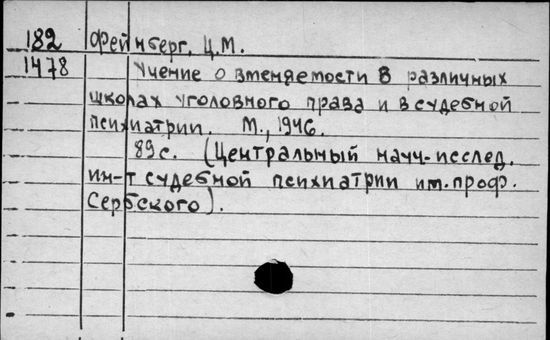 182 Фейнберг, Ц.М.
1478 Учение о вменяемости в различных
школах уголовного права и в судебной
психиатрии. М., 1946.
89 с. (Центральный науч-исслед.
ин-т судебной психиатрии им. проф.
Сербского).